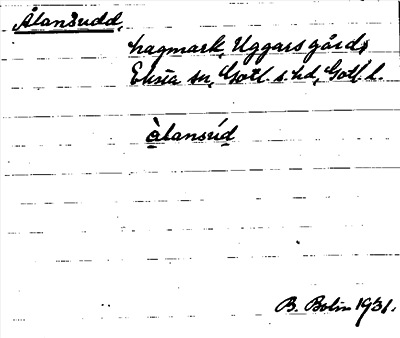 Ålansudd,
hagmark, Uggårs gård,
Eksta sn, Gotl. s. hd, Gotl. l.
àlansúd
B. Bolin 1931.